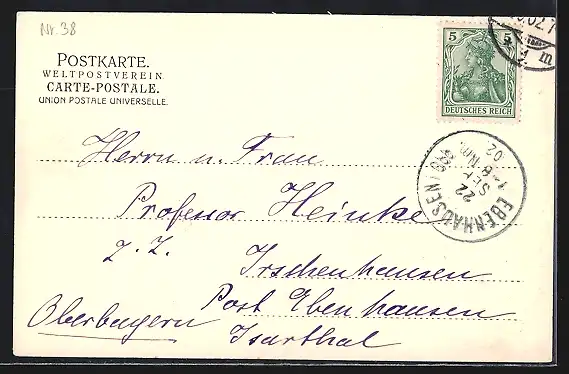 Nr. 38
POSTKARTE.
WELTPOSTVEREIN.
CARTE-POSTALE.
UNION POSTALE UNIVERSELLE.
5 5
DEUTSCHES REICH
EBENHAUSEN
22
SEP
02
Herrn u. Frau
Professor Heinke
z. Z. Irschenhausen
Post Ebenhausen
Oberbayern Isarthal